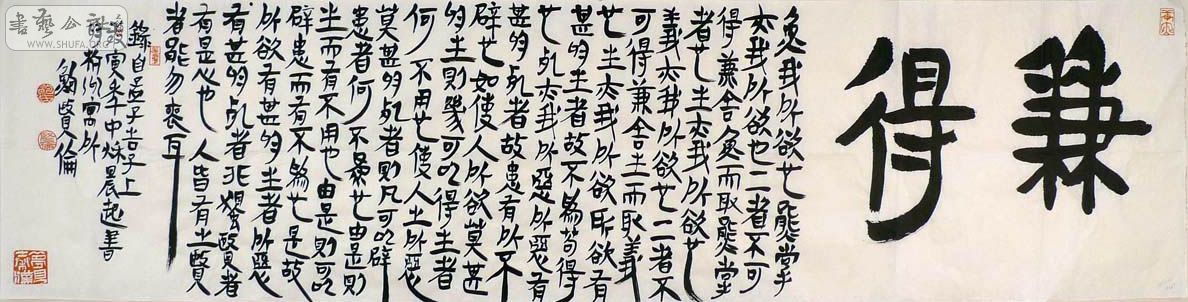 兼得
魚我所欲也熊掌
亦我所欲也二者不可
得兼舍魚而取熊掌
者也生亦我所欲也
義亦我所欲也二者不
可得兼舍生而取義
也生亦我所欲所欲有
甚於生者故不為苟得
也死亦我所惡所惡有
甚於死者故患有所不
辟也如使人所欲莫甚
於生則凡可以得生者
何不用也使人之所惡
莫甚於死者則凡可以辟
患者何不為也由是則
生而有不用也由是則可以
辟患而有不為也是故
所欲有甚於生者所惡
有甚於死者非獨賢者
有是心也人皆有之賢
者能勿喪耳
錄自孟子告子上
寅年中秋晨起書
寓所
賢倫
書藝公社
WWW.SHUFA.ORG